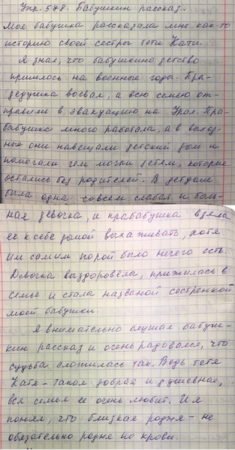 Упр. 548. Бабушкин рассказ.
Моя бабушка рассказала мне как-то
историю своей сестры тёти Кати.
Я знал, что бабушкино детство
пришлось на военные годы. Пра-
дедушка воевал, а всю семью от-
правили в эвакуацию на Урал. Пра-
бабушка много работала, а в выход-
ные они навещали детский дом и
помогали чем могли детям, которые
остались без родителей. В детдоме
была одна совсем слабая и боль-
ная девочка, и прабабушка взяла
её к себе домой выхаживать, хотя
им самим порой было нечего есть.
Девочка выздоровела, прижилась в
семье и стала названой сестрёнкой
моей бабушки.
Я внимательно слушал бабуш-
кин рассказ и очень радовался, что
судьба сложилась так. Ведь тётя
Катя - такая добрая и душевная,
вся семья её очень любит. И я
понял, что близкая родня - не
обязательно родня по крови.